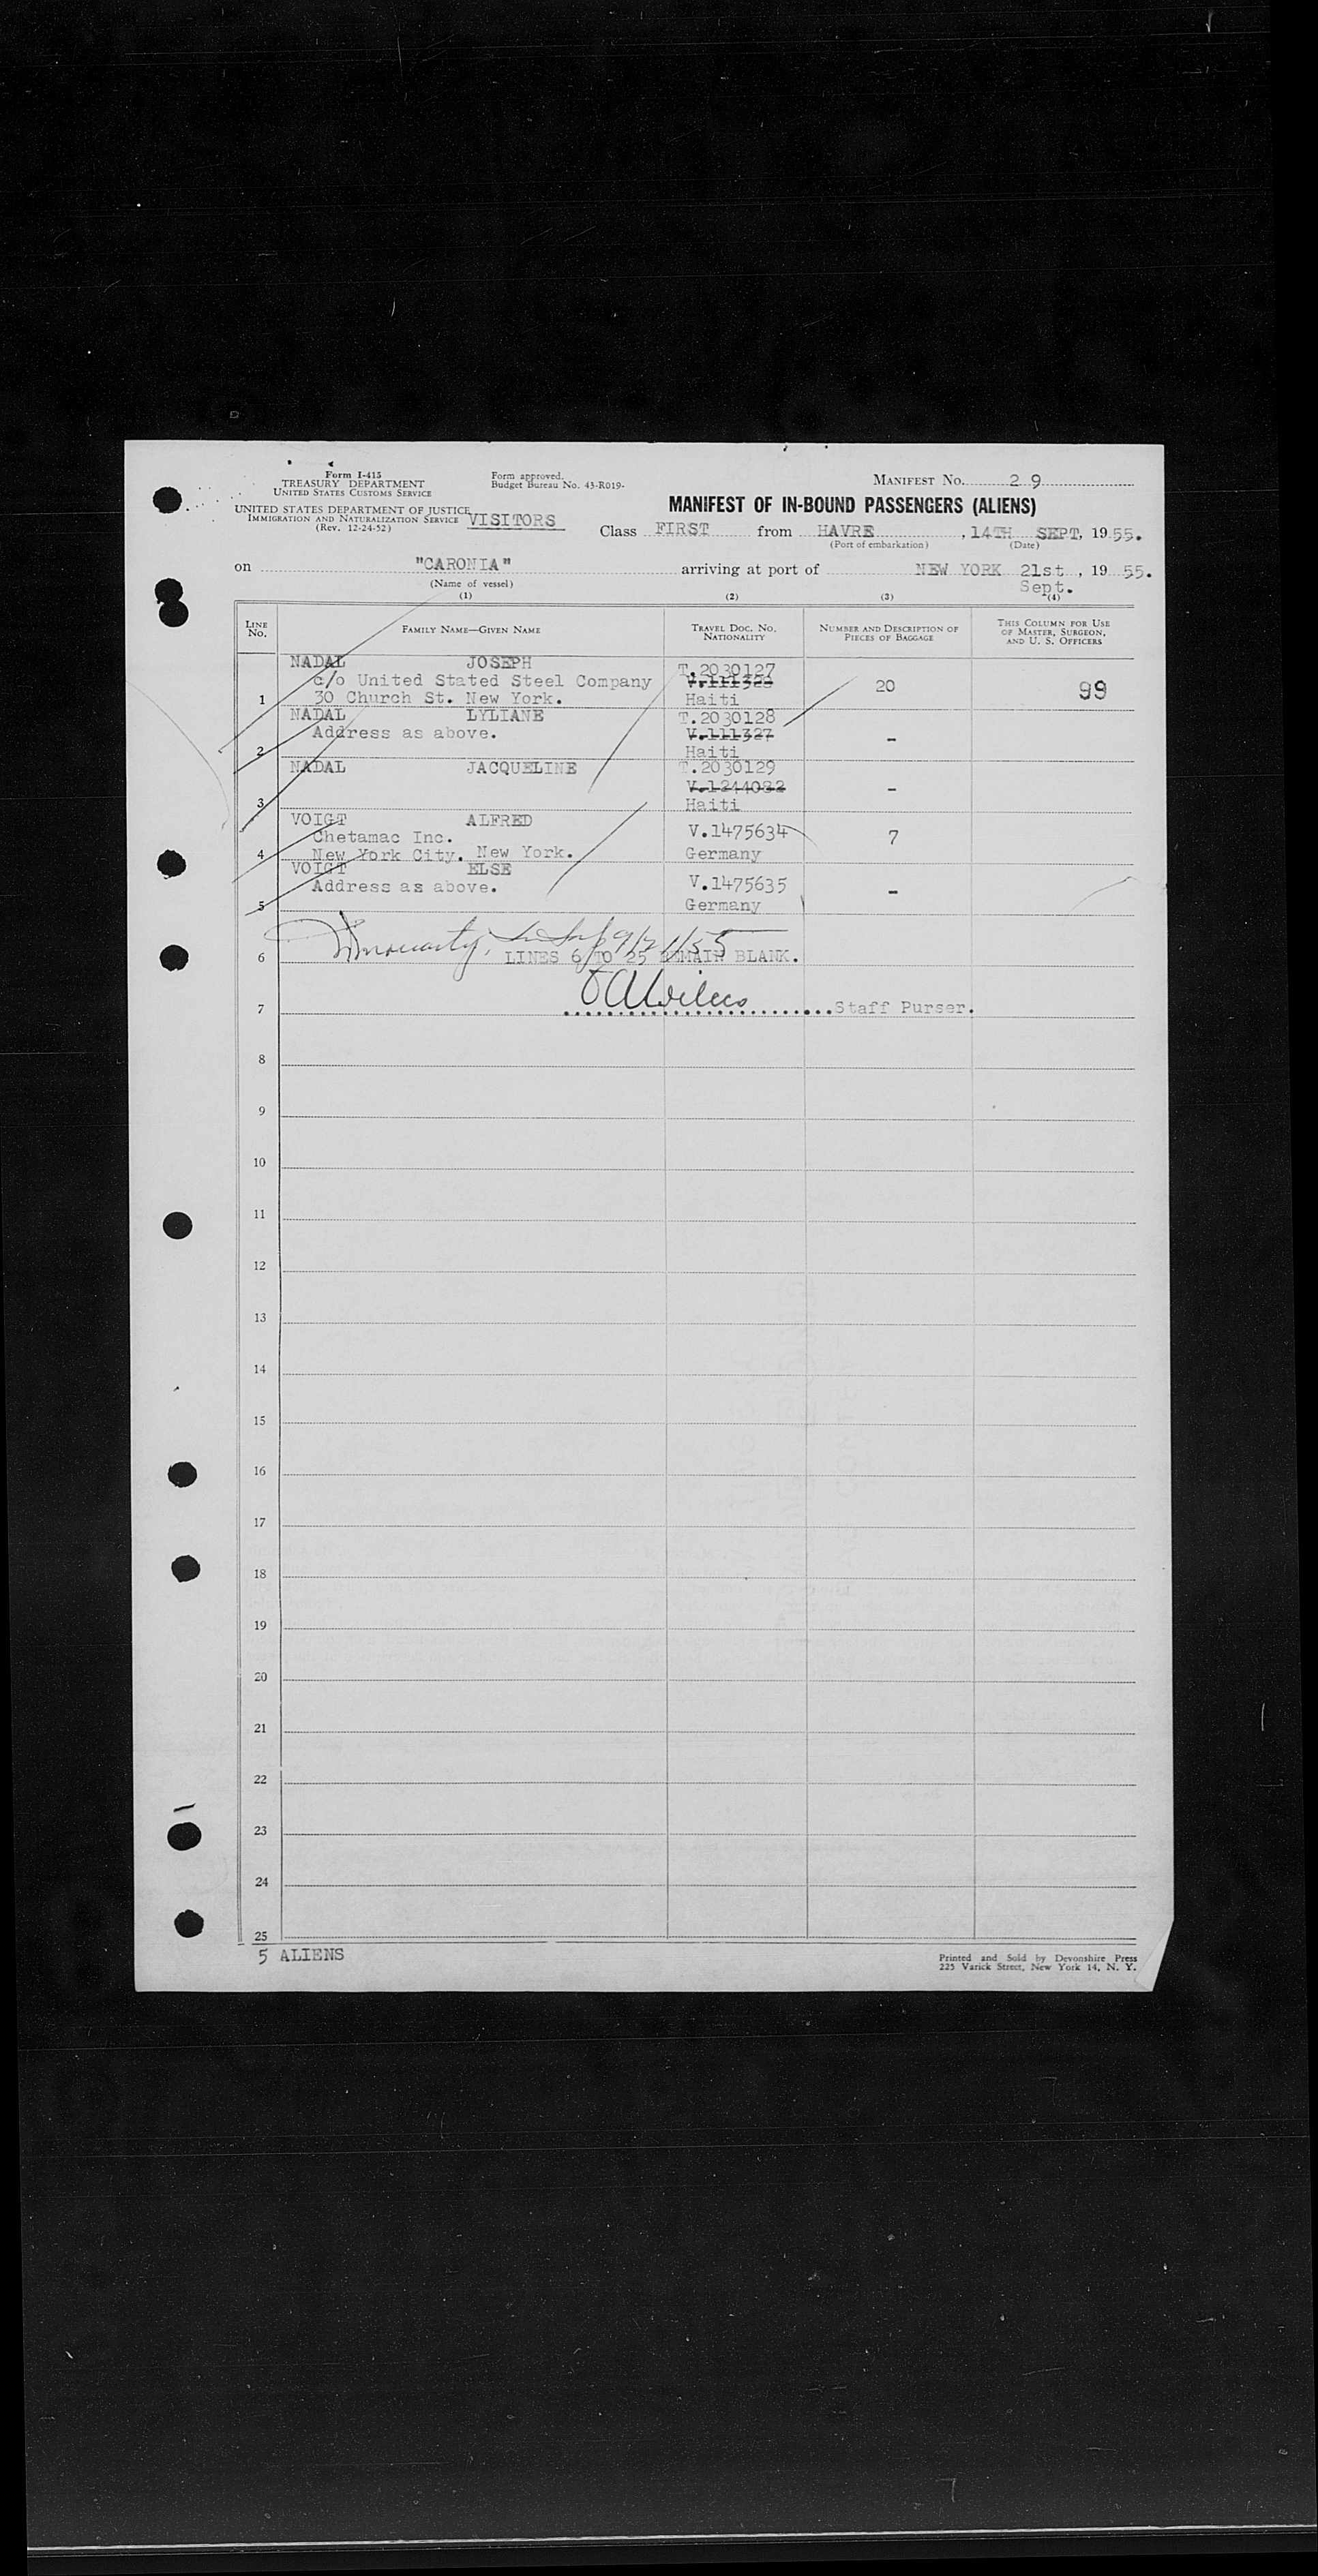 Form I-415
TREASURY DEPARTMENT
UNITED STATES CUSTOMS SERVICE
UNITED STATES DEPARTMENT OF JUSTICE
IMMIGRATION AND NATURALIZATION SERVICE
(Rev. 12-24-52)
VISITORS
Form approved.
Budget Bureau No. 43-R019-
MANIFEST No. 29
MANIFEST OF IN-BOUND PASSENGERS (ALIENS)
Class FIRST from HAVRE, 14TH SEPT, 1955.
(Port of embarkation) (Date)
on "CARONIA" arriving at port of NEW YORK 21st, 1955.
Sept.
(Name of vessel)
(1) (2) (3) (4)
LINE No. FAMILY NAME—GIVEN NAME TRAVEL DOC. NO. NATIONALITY NUMBER AND DESCRIPTION OF PIECES OF BAGGAGE THIS COLUMN FOR USE OF MASTER, SURGEON, AND U. S. OFFICERS
NADAL JOSEPH T.2030127
c/o United Stated Steel Company
1 30 Church St. New York. Haiti 20 99
NADAL LYLIANE T.2030128
Address as above. V.111327 -
2 Haiti
NADAL JACQUELINE T.2030129
V.1244082 -
3 Haiti
VOIGT ALFRED
Chetamac Inc. V.1475634 7
4 New York City. New York. Germany
VOIGT ELSE
Address as above. V.1475635 -
5 Germany
9/21/55
6 LINES 6 TO 25 REMAIN BLANK.
7 Staff Purser.
8
9
10
11
12
13
14
15
16
17
18
19
20
21
22
23
24
25
5 ALIENS
Printed and Sold by Devonshire Press
225 Varick Street, New York 14, N. Y.